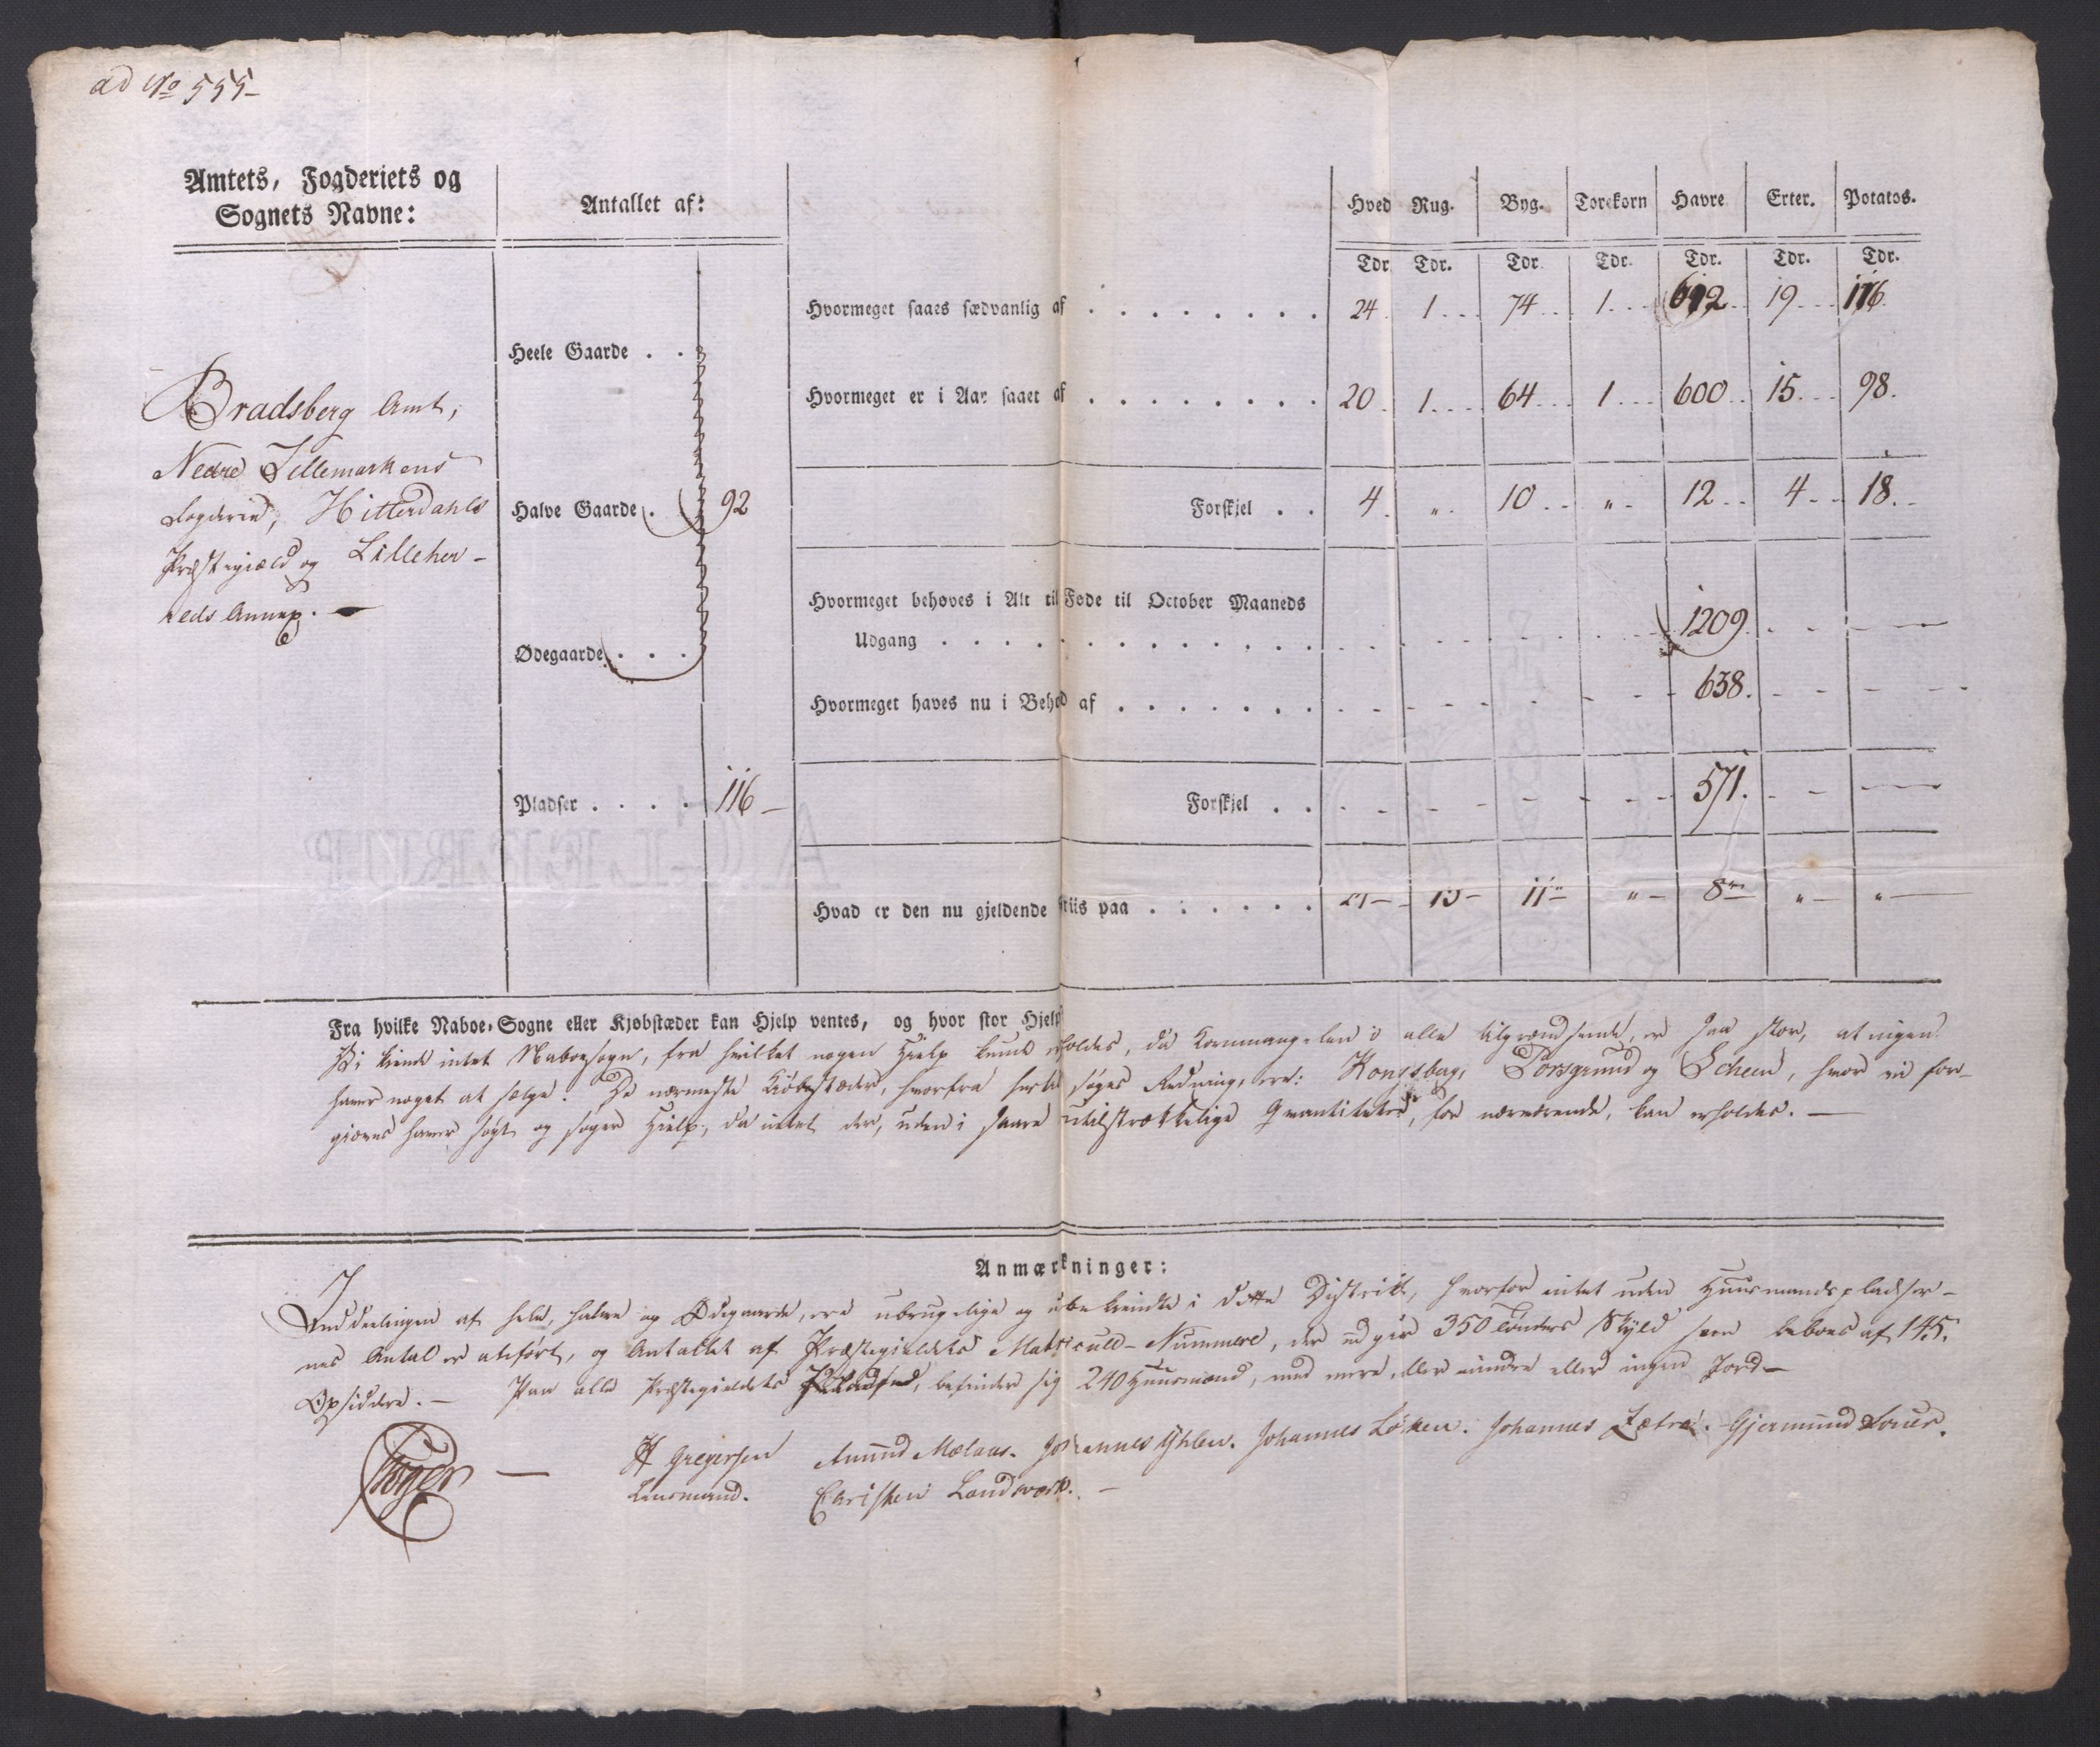 ad No 555
Amtets, Fogderiets og
Sognets Navne:
Antallet af:
Hved Rug. Byg. Torekorn Havre Erter. Potatos.
Tdr Tdr. Tdr. Tdr. Tdr. Tdr. Tdr.
Hvormeget saaes sædvanlig af 24. 1. 74. 1. 612. 19. 116.
Heele Gaarde
Hvormeget er i Aar saaet af 20. 1. 64. 1. 600. 15. 98.
Bradsberg Amt,
Nedre Tellemarkens
Fogderie, Hitterdahls
Præstegiæld og Lilleher-
reds Annex.
Halve Gaarde 92
Forskjel 4. " 10. " 12 4 18.
Hvormeget behøves i Alt til Føde til October Maaneds
Udgang 1209
Ødegaarde
Hvormeget haves nu i Behold af 638.
Pladser 116
Forskjel 571.
Hvad er den nu gjeldende Priis paa 15 11 " 8 " "
Fra hvilke Naboe-Sogne eller Kjøbstæder kan Hjelp ventes, og hvor stor Hjelp
Vi kiende intet Naboesogn, fra hvilket nogen Hielp kunde erholdes, da Kornmangelen i alle tilgrændsende, er saa stor, at ingen
haver noget at sælge. De nærmeste Kiøbstæder, hvorfra her til søges Redning, ere: Kongsberg, Porsgrund og Scheen, hvor vi for-
giæves haver søgt og søger Hielp, da intet der, uden i saare utilstrækkelige Qvantiteter, for nærværende, kan erholdes.
Anmærkninger:
Inddeelingen af hele, halve og Ødegaarde, ere ubrugelige og ubekiendte i dette District, hvorfor intet uden Huusmandspladser-
nes Antal er anført, og Antallet af Præstegieldets Matriculs-Nummere, der udgiør 350 Tønders Skyld som beboes af 145
Opsiddere. Paa alle Præstegieldets befinder sig 240 Huusmænd, med mere eller mindre eller ingen Jord
H Gregersen Amund Mælaas. Johannes Yhlen. Johannes Løken. Johannes Sætre. Gjermund
Lensmand. Christen Landsværk.